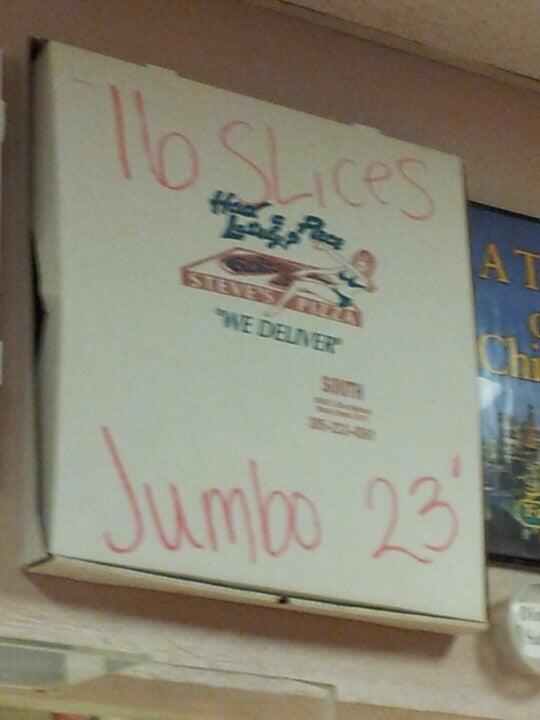 16 SLices
Have a Pizza
STEVE'S PIZZA
"WE DELIVER"
SOUTH
Jumbo 23'
A T
Chi